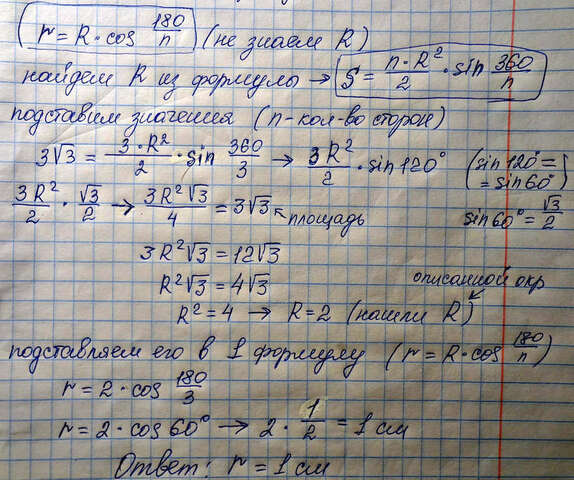 r = R · cos 180/n (не знаем R)
найдем R из формулы → S = n·R²/2 · sin 360/n
подставим значения (n - кол-во сторон)
3√3 = 3·R²/2 · sin 360/3 → 3R²/2 · sin 120° (sin 120° =
= sin 60°)
3R²/2 · √3/2 → 3R²√3/4 = 3√3 ↖ площадь sin 60° = √3/2
3R²√3 = 12√3
R²√3 = 4√3 описанной окр
R² = 4 → R = 2 (нашли R)
подставляем его в 1 формулу (r = R · cos 180/n)
r = 2 · cos 180/3
r = 2 · cos 60° → 2 · 1/2 = 1 см
Ответ: r = 1 см